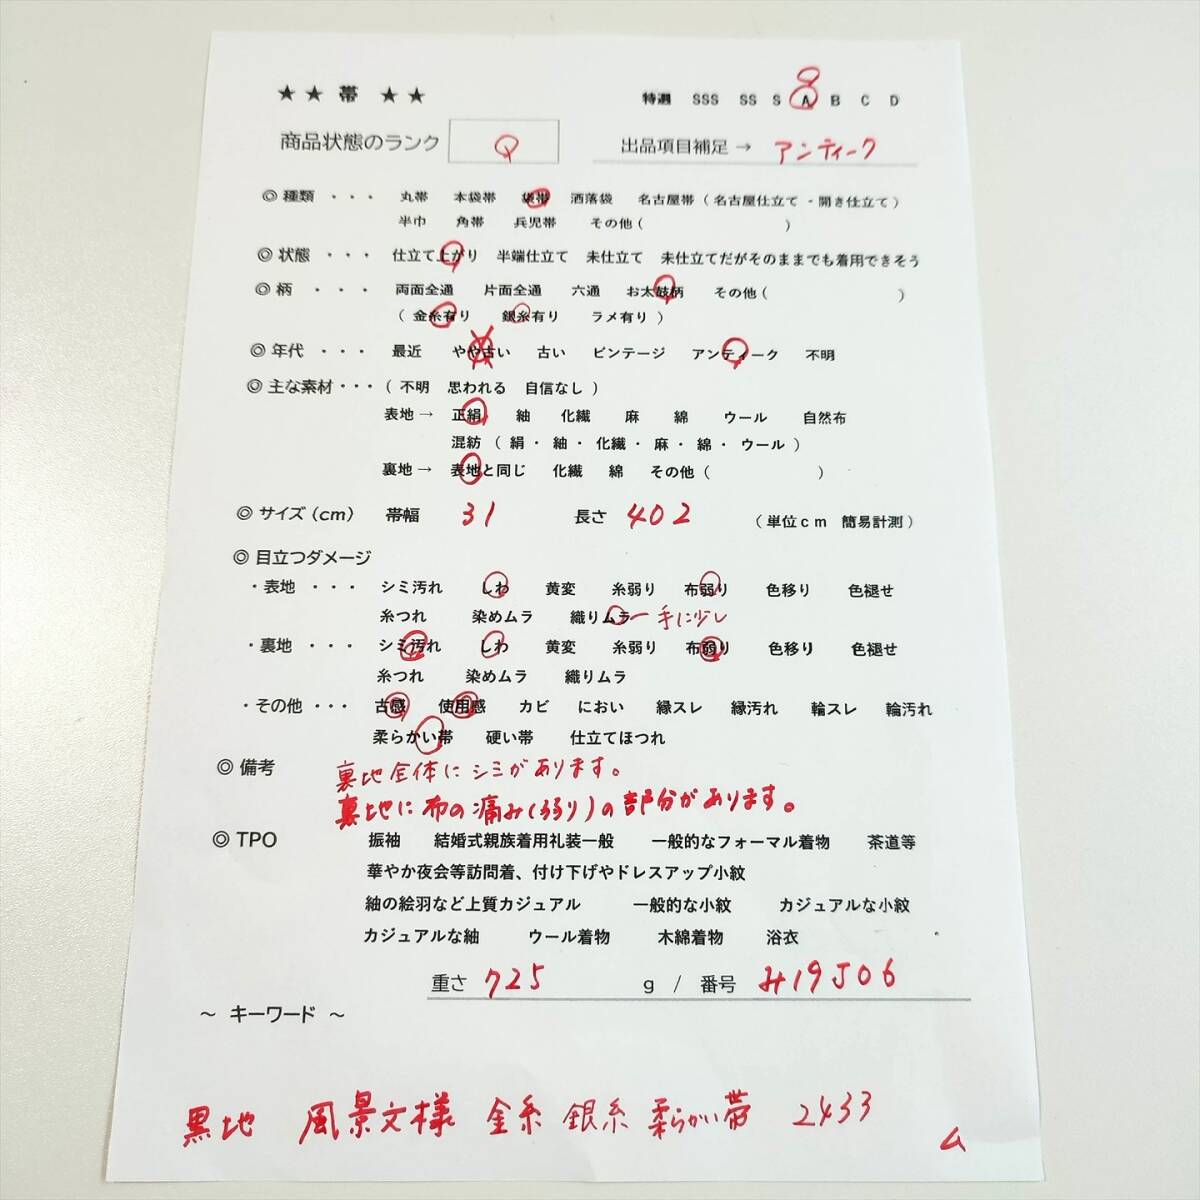 ★ ★ 帯 ★ ★
特選 SSS SS S A B C D
商品状態のランク
出品項目補足 → アンティーク
◎ 種類 ・・・ 丸帯 本袋帯 袋帯 洒落袋 名古屋帯 ( 名古屋仕立て - 開き仕立て )
半巾 角帯 兵児帯 その他 ( )
◎ 状態 ・・・ 仕立て上がり 半端仕立て 未仕立て 未仕立てだがそのままでも着用できそう
◎ 柄 ・・・ 両面全通 片面全通 六通 お太鼓柄 その他 ( )
( 金糸有り 銀糸有り ラメ有り )
◎ 年代 ・・・ 最近 やや古い 古い ビンテージ アンティーク 不明
◎ 主な素材・・・ ( 不明 思われる 自信なし )
表地 → 正絹 紬 化繊 麻 綿 ウール 自然布
混紡 ( 絹・ 紬・ 化繊・ 麻・ 綿・ ウール )
裏地 → 表地と同じ 化繊 綿 その他 ( )
◎ サイズ (cm) 帯幅 31 長さ 402 ( 単位cm 簡易計測 )
◎ 目立つダメージ
・表地 ・・・ シミ汚れ しわ 黄変 糸弱り 布弱り 色移り 色褪せ
糸つれ 染めムラ 織りムラ
・裏地 ・・・ シミ汚れ しわ 黄変 糸弱り 布弱り 色移り 色褪せ
糸つれ 染めムラ 織りムラ
・その他 ・・・ 古感 使用感 カビ におい 縁スレ 縁汚れ 輪スレ 輪汚れ
柔らかい帯 硬い帯 仕立てほつれ
◎ 備考 裏地全体にシミがあります。
裏地に布の痛み(弱り)の部分があります。
◎ TPO 振袖 結婚式親族着用礼装一般 一般的なフォーマル着物 茶道等
華やか夜会等訪問着、付け下げやドレスアップ小紋
紬の絵羽など上質カジュアル 一般的な小紋 カジュアルな小紋
カジュアルな紬 ウール着物 木綿着物 浴衣
重さ 725 g / 番号 み19J06
～ キーワード ～
黒地 風景文様 金糸 銀糸 柔らかい帯 2433
ム